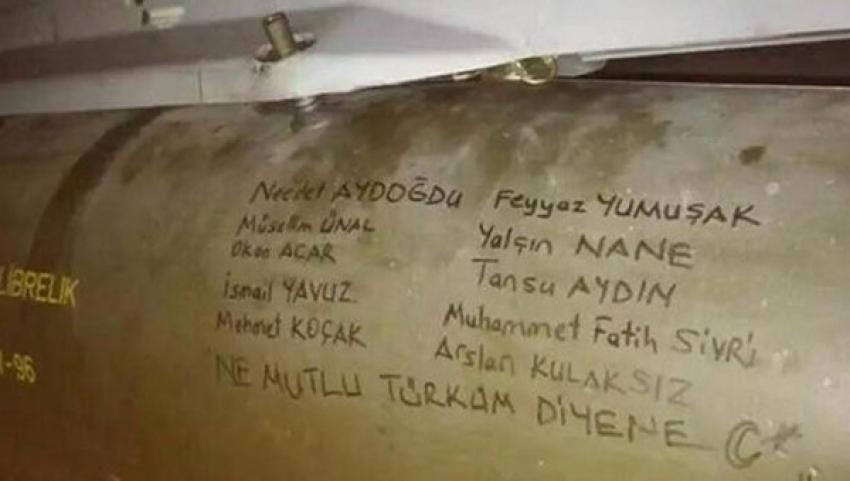 Necdet AYDOĞDU Feyyaz YUMUŞAK
Müsellim ÜNAL Yalçın NANE
Okan ACAR Tansu AYDIN
İsmail YAVUZ Muhammet Fatih SİVRİ
Mehmet KOÇAK Arslan KULAKSIZ
NE MUTLU TÜRKÜM DİYENE
LİBRELİK
-96